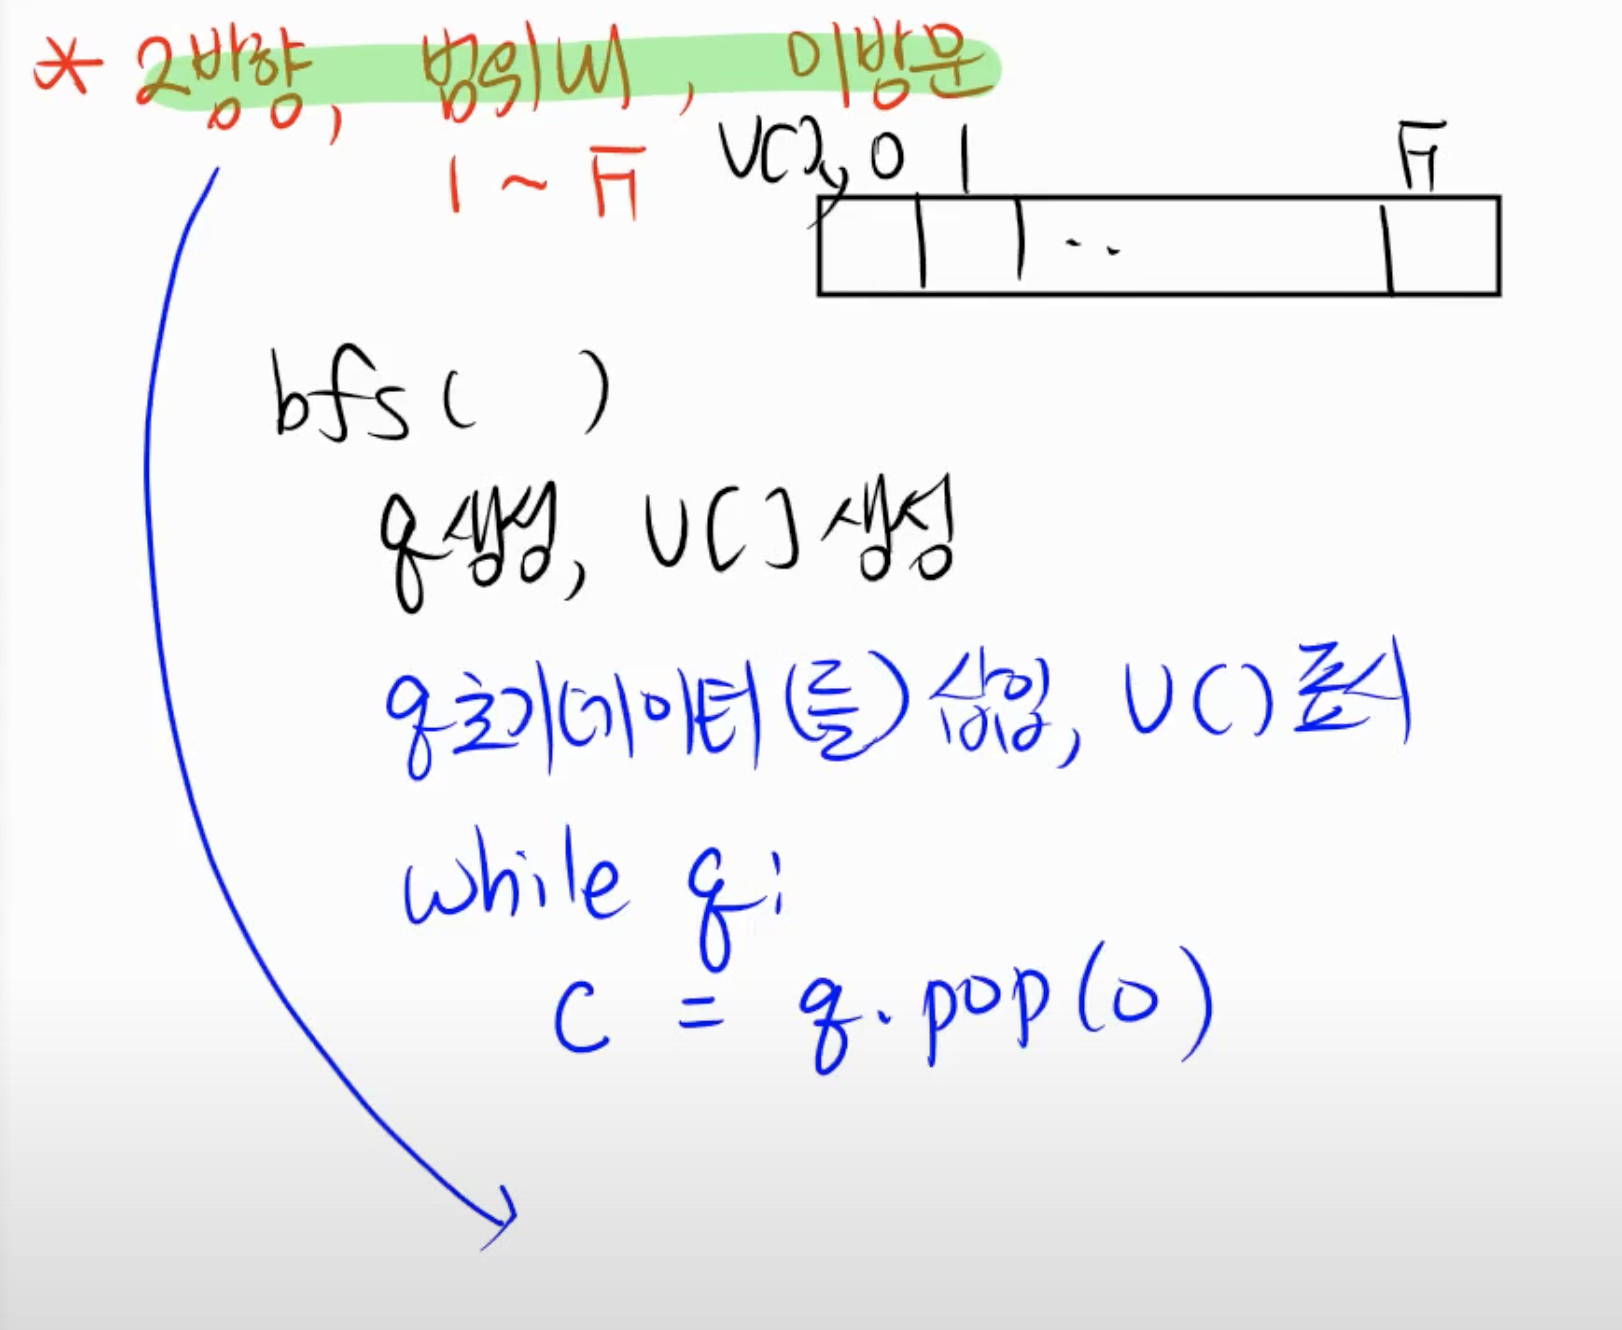 * 2방향, 범위내, 미방문
1 ~ F
V[], 0 1 F
..
bfs( )
q생성, V[] 생성
q초기데이터(들) 삽입, V[] 표시
while q:
C = q.pop(0)